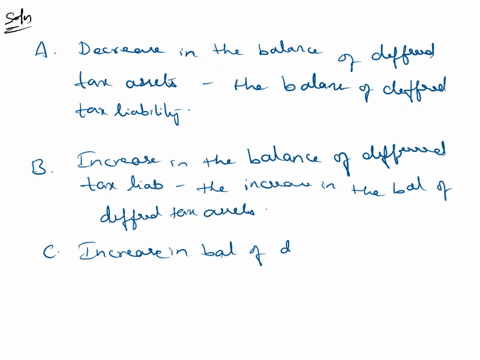 Soln
A. Decrease in the balance of deffred
tax assets - the balance of deffred
tax liability.
B. Increase in the balance of defferred
tax liab - the increase in the bal of
deffred tax assets.
C. Increase in bal of d